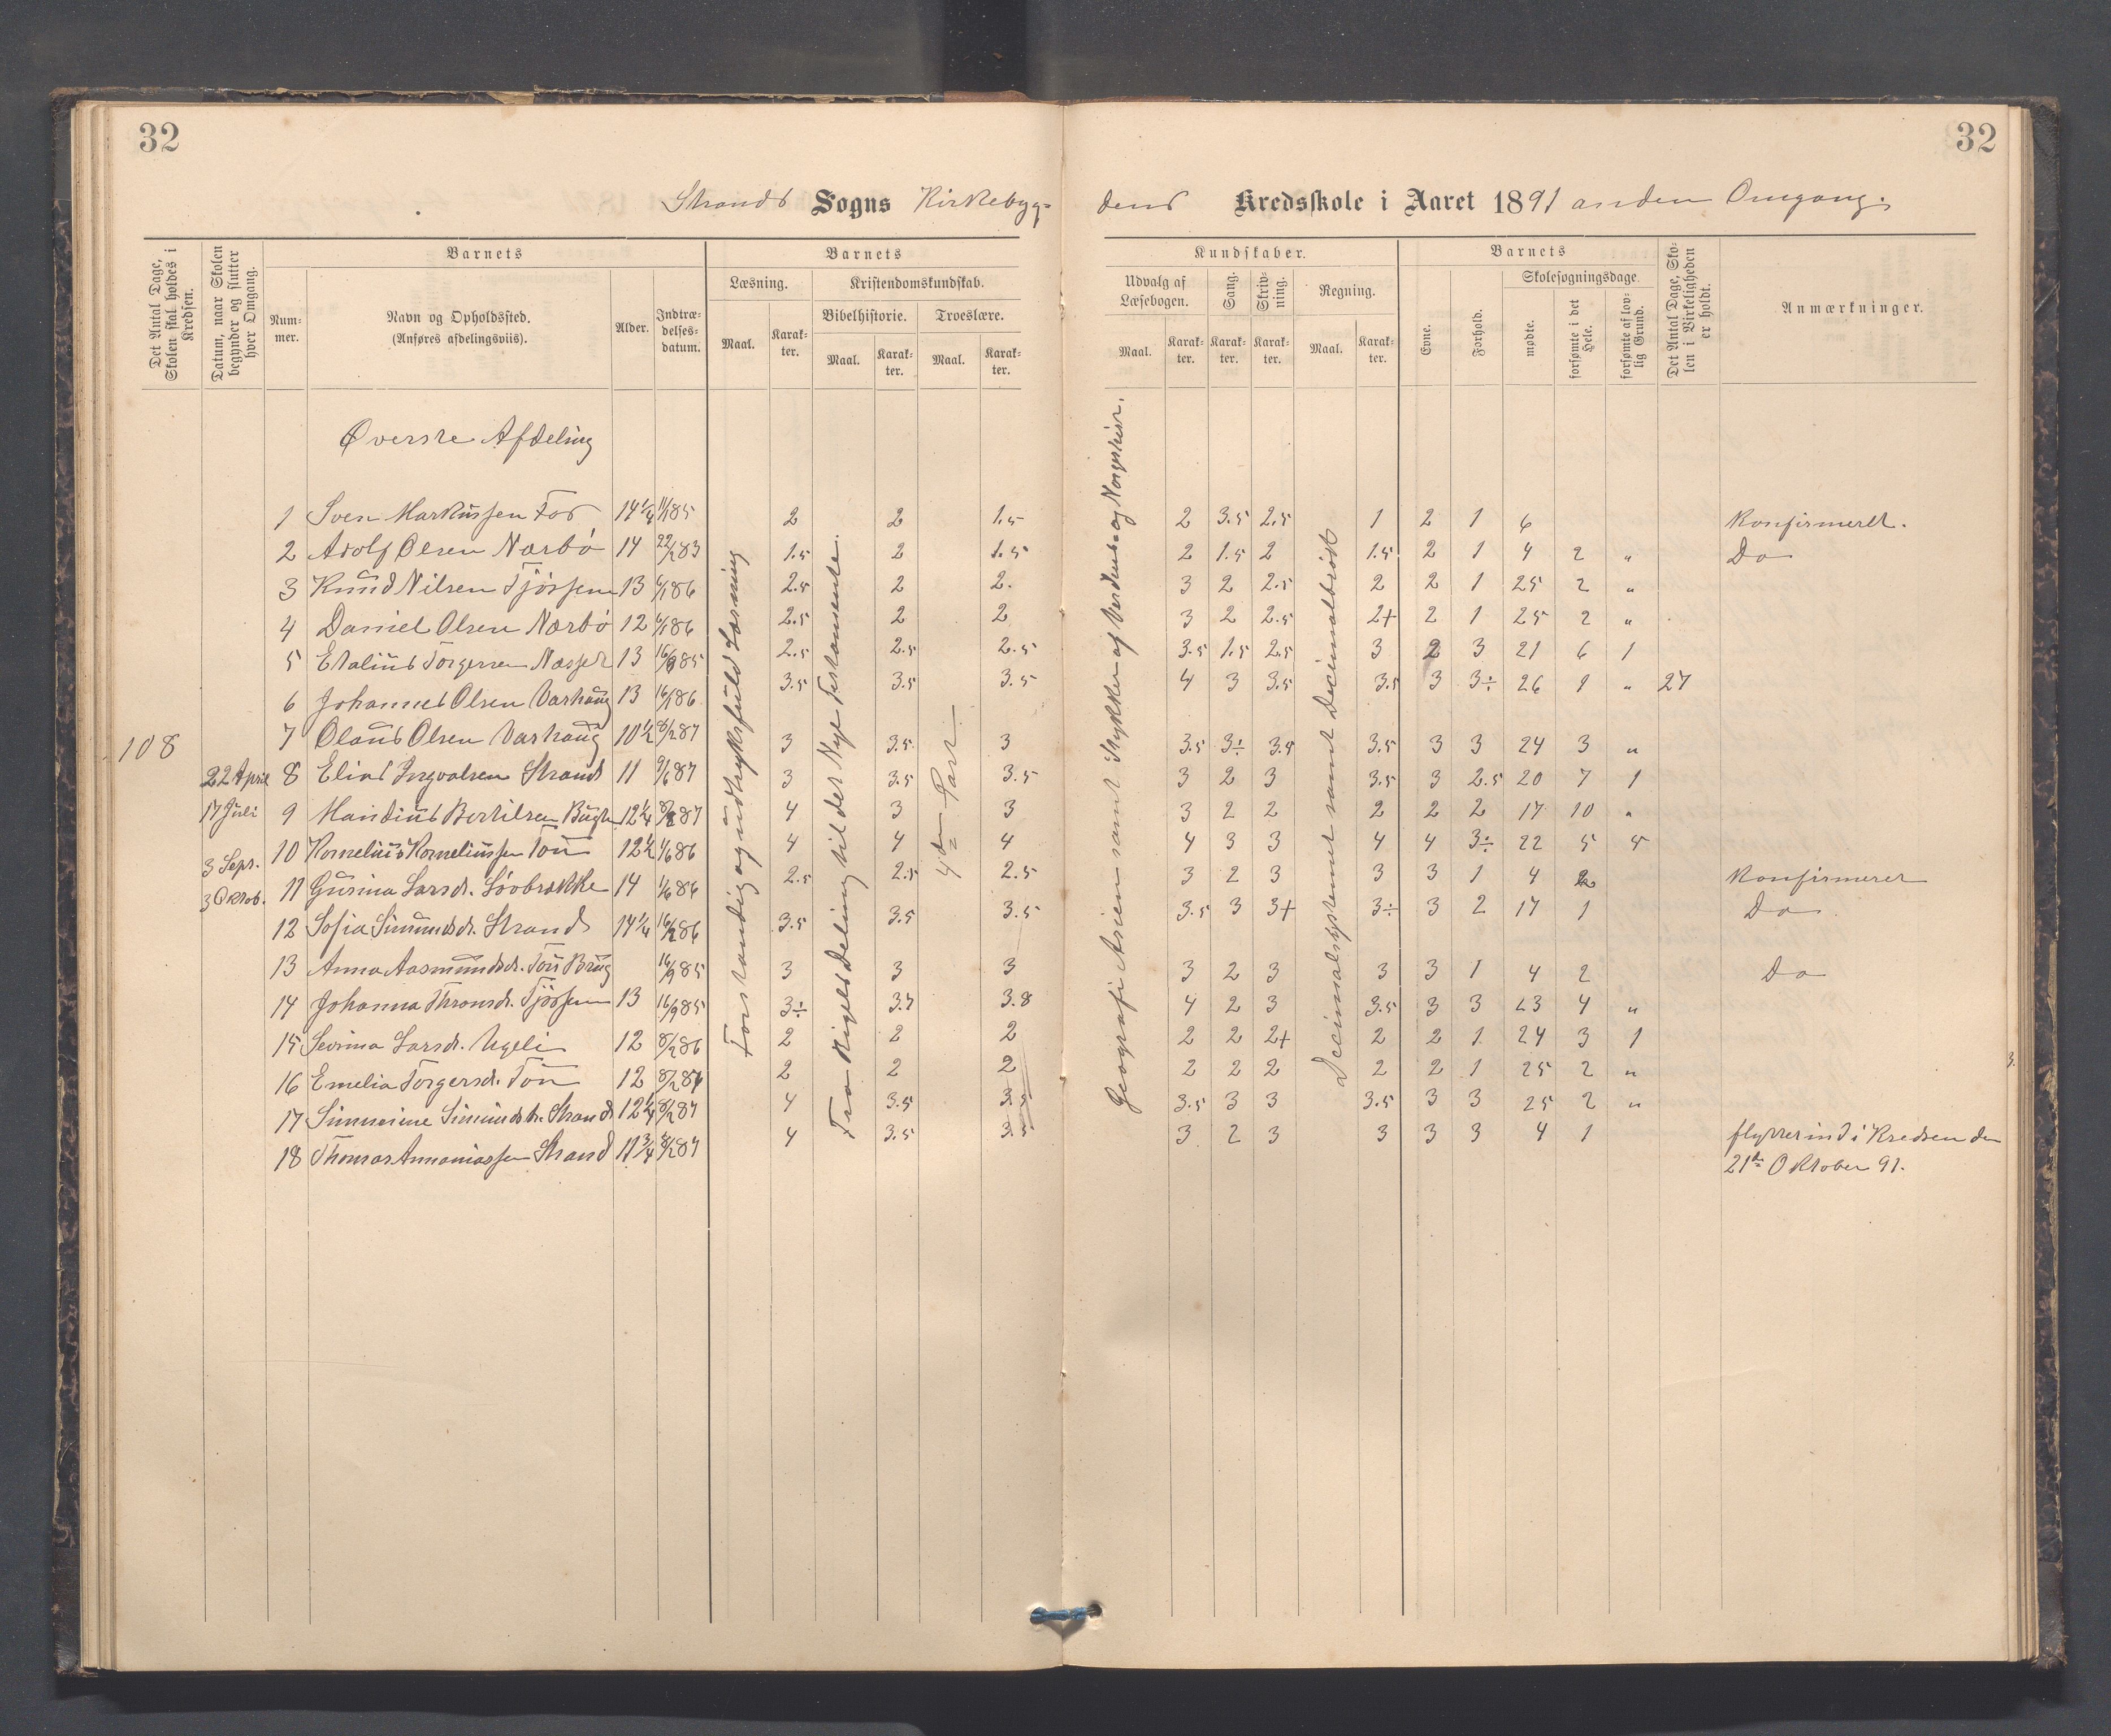 32
32
Strands Sogns Kirkebyg-
dens Kredsskole i Aaret 1891 anden Omgang.
Det Antal Dage, Skolen skal holdes i Kredsen.
Datum, naar Skolen begynder og slutter hver Omgang.
Barnets
Num-
mer.
Navn og Opholdssted.
(Anføres afdelingsviis).
Alder.
Indtræ-
delses-
datum.
Barnets
Læsning.
Maal.
Karak-
ter.
Kristendomskundskab.
Bibelhistorie.
Maal.
Karak-
ter.
Troeslære.
Maal.
Karak-
ter.
Kundskaber.
Udvalg af
Læsebogen.
Maal.
Karak-
ter.
Sang.
Karak-
ter.
Skriv-
ning.
Karak-
ter.
Regning.
Maal.
Karak-
ter.
Barnets
Evne.
Forhold.
Skolesøgningsdage.
mødte.
forsømte i det Hele.
forsømte af lov-
lig Grund.
Det Antal Dage, Sko-
len i Virkeligheden
er holdt.
Anmærkninger.
Øverste Afdeling
108
22 April
17 Juli
3 Sept.
3 Oktob.
Forstandig og udtryksfuld Læsning
Fra Rigets Deling til det Nye Testamente.
4de Part
Geografi Asien samt Stykker af Verdens og Norgeshist.
Decimalsystemet samt Decimalbrøk
1 Sven Markussen Fos 14¼ 11/1 85 2 2 1.5 2 3.5 2.5 1 2 1 6 Konfirmeret.
2 Adolf Olsen Nærbø 14 22/2 83 1.5 2 1.5 2 1.5 2 1.5 2 1 4 2 " Do
3 Knud Nilsen Tjøssem 13 6/1 86 2.5 2 2. 3 2 2.5 2 2 1 25 2 "
4 Daniel Olsen Nærbø 12 6/1 86 2.5 2 2 3 2 2.5 2+ 2 1 25 2 "
5 Etalius Torgersen 13 16/9 85 2.5 2.5 2.5 3.5 1.5 2.5 3 2 3 21 6 1
6 Johannes Olsen Varhaug 13 16/1 86 3.5 3.5 3.5 4 3 3.5 3.5 3 3÷ 26 1 " 27
7 Olaus Olsen Varhaug 10½ 8/2 87 3 3.5 3 3.5 3÷ 3.5 3.5 3 3 24 3 "
8 Elias Ingvalsen Strand 11 9/6 87 3 3.5 3.5 3 2 3 3.5 3 2.5 20 7 1
9 Mandius Bertilsen 12¼ 8/2 87 4 3 3 3 2 2 2 2 2 17 10 "
10 Kornelius Korneliussen Tou 12½ 1/6 86 4 4 4 4 3 3 4 4 3÷ 22 5 5
11 Gurina Larsd. Løvbrække 14 1/6 86 2.5 2.5 2.5 3 2 3 3 3 1 4 2 Konfirmeret
12 Sofia Simunds d. Strand 14¼ 16/2 86 3.5 3.5 3.5 3.5 3 3+ 3÷ 3 2 17 1 Do
13 Anna Aasmundsd. Tou Brug 16/9 85 3 3 3 3 2 3 3 3 1 4 2 Do
14 Johanna Thronsd. Tjøssem 13 16/9 85 3÷ 3.7 3.8 4 2 3 3.5 3 3 23 4 "
15 Sevrina Larsd. Ugeli 12 8/2 86 2 2 2 2 2 2+ 2 2 1 24 3 1
16 Emelia Torgersd. Tou 12 8/2 86 2 2 2 2 2 2 2 2 1 25 2 "
17 Simmerine Simundsdr. Strand 12¼ 8/2 87 4 3.5 3.5 3.5 3 3 3.5 3 3 25 2 "
18 Thomas Annaniassen Strand 11¾ 8/2 87 4 3.5 3.5 3 2 3 3 3 3 4 1 flyttet ind i Kredsen den
21de Oktober 91.